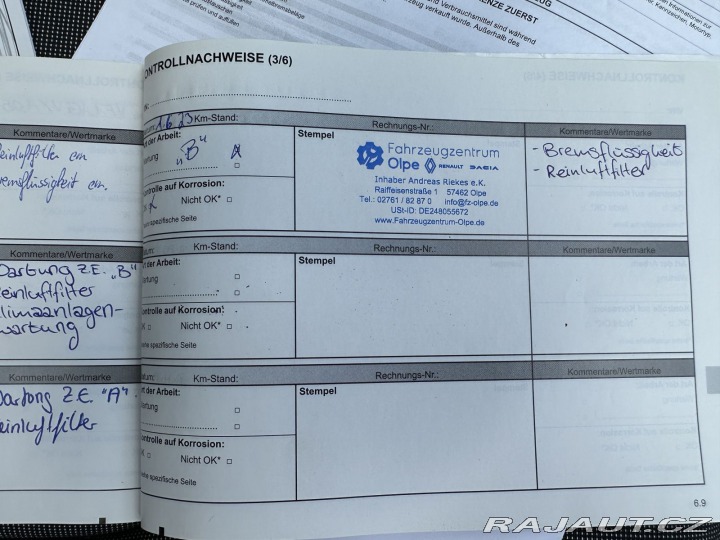 ENZE ZUERST
und Verbrauchsmittel sind während
zeug verkauft wurde. Außerhalb des
Kommentare/Wertmarke
Kommentare/Wertmarke
Wartung Z.E. "B"
Reinluftfilter
Klimaanlagen-
wartung
Kommentare/Wertmarke
Wartung Z.E. "A"
Reinluftfilter
ONTROLLNACHWEISE (3/6)
IN:
1.6.23 Km-Stand: Rechnungs-Nr.:
t der Arbeit: Stempel Kommentare/Wertmarke
artung "B"
ontrolle auf Korrosion:
Nicht OK*
he spezifische Seite
Fahrzeugzentrum
Olpe RENAULT DACIA
Inhaber Andreas Riekes e.K.
Raiffeisenstraße 1 57462 Olpe
Tel.: 02761 / 82 87 0 info@fz-olpe.de
USt-ID: DE248055672
www.Fahrzeugzentrum-Olpe.de
- Bremsflüssigkeit
- Reinluftfilter
atum: Km-Stand: Rechnungs-Nr.:
rt der Arbeit: Stempel Kommentare/Wertmarke
artung
ontrolle auf Korrosion:
OK Nicht OK*
ehe spezifische Seite
atum: Km-Stand: Rechnungs-Nr.:
rt der Arbeit: Stempel Kommentare/Wertmarke
artung
ontrolle auf Korrosion:
K Nicht OK*
ehe spezifische Seite
6.9
RAJAUT.CZ